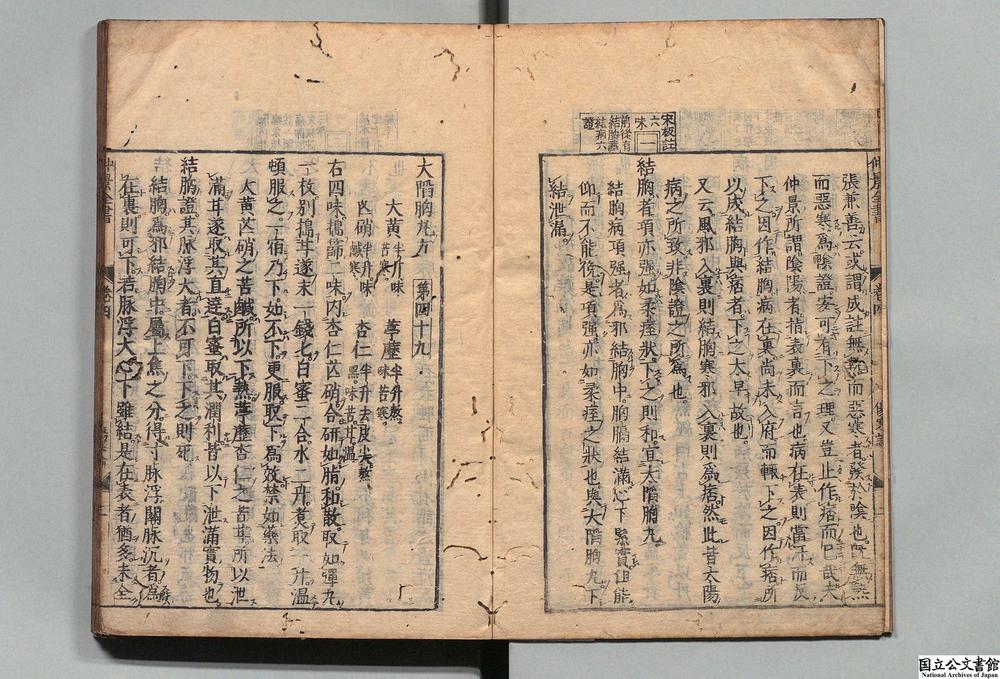 張兼善云或謂成註無熱而惡寒者發於陰也既無熱
而惡寒爲陰證安可有下之理又豈止作痞而已哉夫
仲景所謂陰陽者指表裏而言也病在表則當汗而反
下之因作結胸病在裏尚未入府而輒下之因作痞所
以成結胸與痞者下之太早故也
又云風邪入裏則結胸寒邪入裏則爲痞然此皆太陽
病之所致非陰證之所爲也
宋板註
六味
一
前後有
結胸臟
結病六
證
結胸者項亦强如柔痓狀下之則和宜大陷胸丸
結胸病項强者爲邪結胸中胸膈結滿心下緊實但能
仰而不能俛是項强亦如柔痓之狀也與大陷胸丸下
結泄滿
大陷胸丸方 第四十九
大黃半斤味苦寒 葶藶半升熬味苦寒
芒硝半升味鹹寒 杏仁半升去皮尖熬黑味苦甘溫
右四味搗篩二味内杏仁芒硝合研如脂和散取如彈丸
一枚別搗甘遂末一錢匕白蜜二合水二升煮取一升溫
頓服之一宿乃下如不下更服取下爲效禁如藥法
大黃芒硝之苦鹹所以下熱葶藶杏仁之苦甘所以泄
滿甘遂取其直達白蜜取其潤利皆以下泄滿實物也
結胸證其脉浮大者不可下下之則死
結胸爲邪結胸中屬上焦之分得寸脉浮關脉沉者爲
在裏則可下若脉浮大心下雖結是在表者猶多未全
仲景全書
卷四
国立公文書館
National Archives of Japan